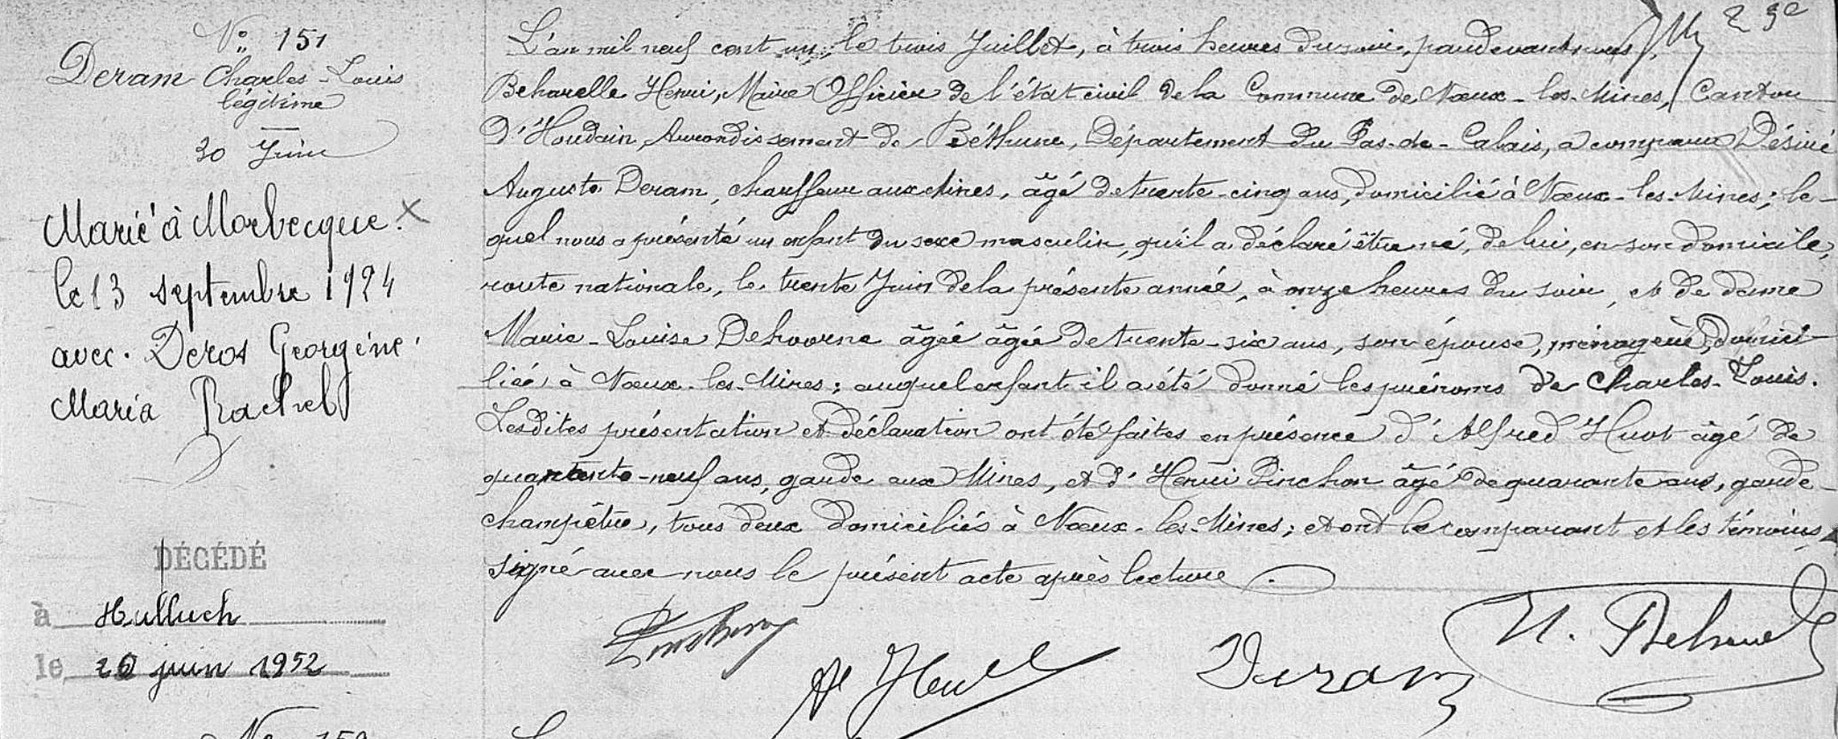 N° 151
Deram Charles-Louis
légitime
30 Juin
Marié à Morbecque. X
le 13 septembre 1924
avec. Deros Georgéne
Maria Rachel
DÉCÉDÉ
à Hulluch
le 20 juin 1952
L'an mil neuf cent un, le trois Juillet, à trois heures du soir, pardevant nous,
Beharelle Henri, Maire Officier de l'état civil de la Commune de Nœux-les-Mines, Canton
D'Houdain, Arrondissement de Béthune, Département du Pas-de-Calais, a comparu Désiré
Auguste Deram, chauffeur aux Mines, âgé de trente-cinq ans, domicilié à Nœux-les-Mines; le-
quel nous a présenté un enfant du sexe masculin, qu'il a déclaré être né, de lui, en son domicile,
route nationale, le trente Juin de la présente année, à onze heures du soir, et de dame
Marie-Louise Dehoorne âgée âgée de trente-six ans, son épouse, ménagère, domici-
liée à Nœux-les-Mines; auquel enfant il a été donné les prénoms de Charles-Louis.
Lesdites présentation et déclaration ont été faites en présence d'Alfred Huot âgé de
quarante-neuf ans, garde aux Mines, et d'Henri Pinchon âgé de quarante ans, garde-
champêtre, tous deux domiciliés à Nœux-les-Mines; et ont le comparant et les témoins
signé avec nous le présent acte après lecture.
Deram
H. Beharelle
No 152